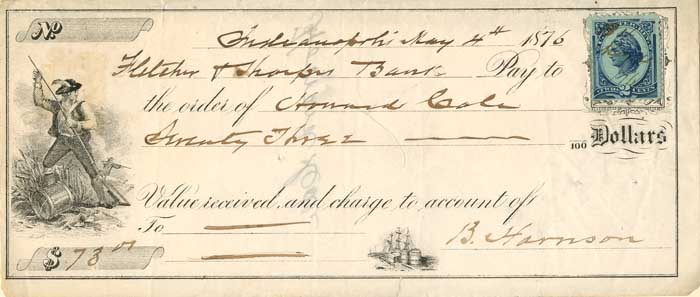 No
Indianapolis May 4th 1876
Fletcher & Sharpes Bank Pay to
the order of Howard Cale
Seventy Three — /100 Dollars
Value received and charge to account of
To
B. Harrison
$ 73 00
2